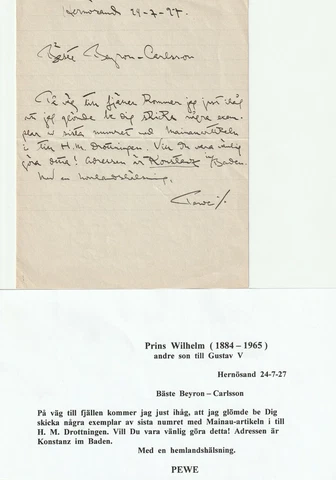 Hernösand 24-7-27.
Bäste Beyron-Carlsson
På väg till fjällen kommer jag just ihåg
att jag glömde be dig skicka några exem-
plar av sista numret med Mainauartikeln
i till H.M. Drottningen. Vill Du vara vänlig
göra detta! Adressen är Konstanz i/Baden.
Med en hemlandshälsning.
Prins Wilhelm ( 1884 – 1965 )
andre son till Gustav V
Hernösand 24-7-27
Bäste Beyron – Carlsson
På väg till fjällen kommer jag just ihåg, att jag glömde be Dig
skicka några exemplar av sista numret med Mainau-artikel i till
H. M. Drottningen. Vill Du vara vänlig göra detta! Adressen är
Konstanz im Baden.
Med en hemlandshälsning.
PEWE